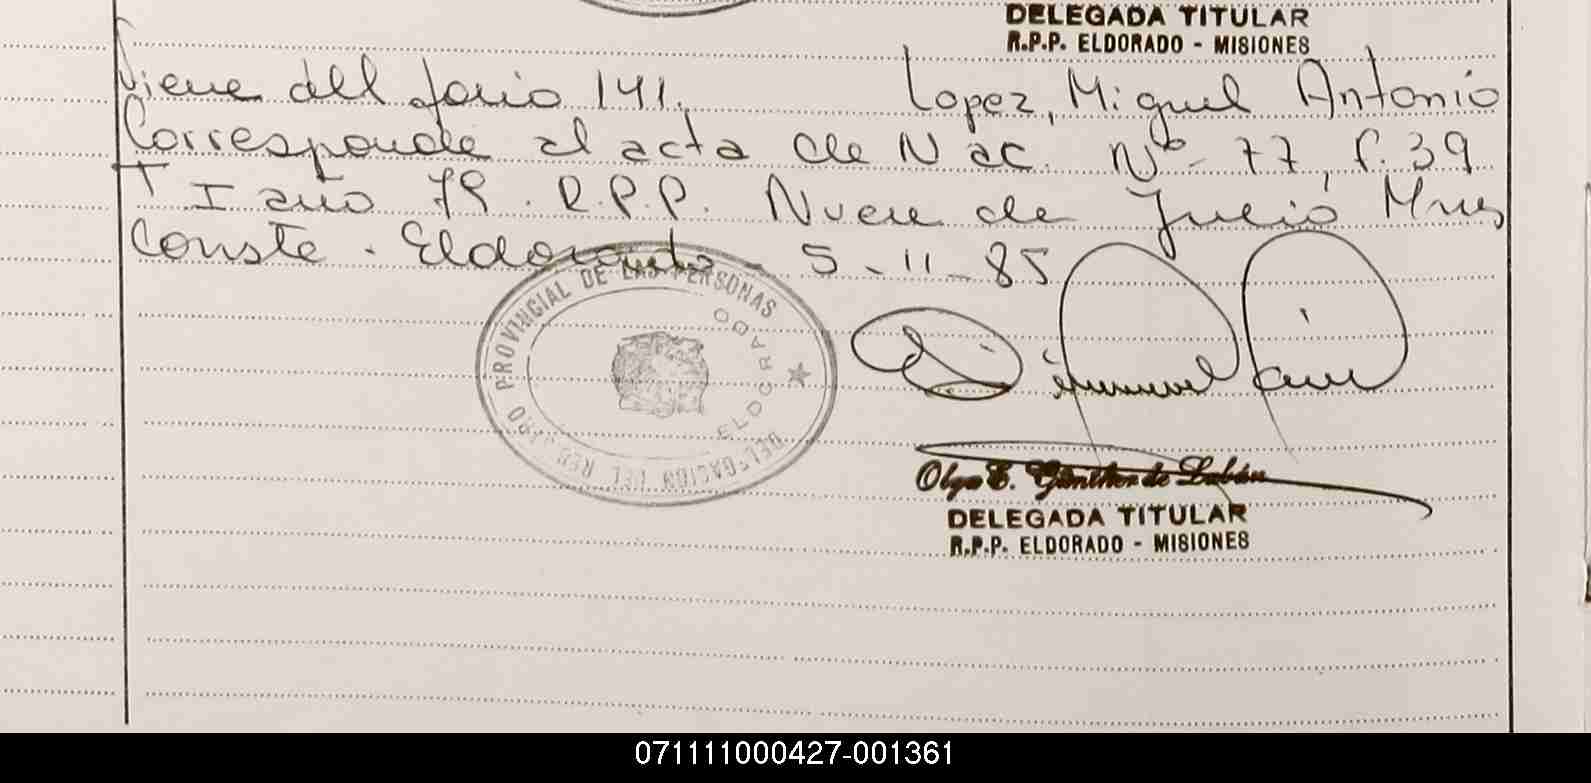 DELEGADA TITULAR
R.P.P. ELDORADO - MISIONES
Viene del folio 141. Lopez, Miguel Antonio
Corresponde al acta de Nac. Nº 77, f. 39
T I año 79. R.P.P. Nueve de Julio Mnes
Conste. Eldorado - 5-11-85
DELEGACION DEL REGISTRO PROVINCIAL DE LAS PERSONAS
ELDORADO
Olga E. Günther de Labán
DELEGADA TITULAR
R.P.P. ELDORADO - MISIONES
071111000427-001361